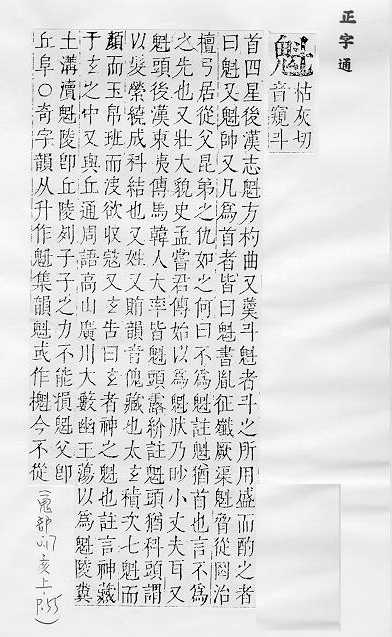 正字通
魁
枯灰切
音窺斗
首四星後漢志魁方杓曲又羹斗魁者斗之所用盛而酌之者
曰魁又魁帥又凡為首者皆曰魁書胤征殲厥渠魁脅從罔治
檀弓居從父昆弟之仇如之何曰不為魁註魁猶首也言不為
之先也又壯大貌史孟嘗君傳始以為魁肰乃小丈夫耳又
魁頭後漢東夷傳馬韓人大率皆魁頭露紒註魁頭猶科頭謂
以髮縈繞成科結也又姓又賄韻音傀藏也太玄積次七魁而
顏而玉帛班而欲收寇又玄告曰玄者神之魁也註言神藏
于玄之中又與丘通周語高山廣川大藪幽王蕩以為魁陵糞
土溝瀆魁陵卽丘陵列子子之力不能損魁父卽
丘阜○奇字韻从升作集韻魁或作今不從
(鬼部
亥上
P.55)